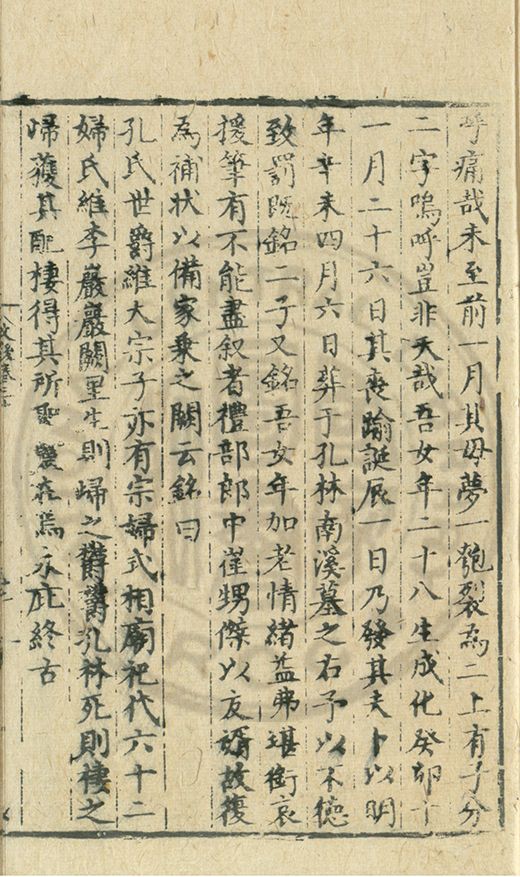 呼痛哉未至前一月其母夢一匏裂為二上有子分
二字嗚呼豈非天哉吾女年二十八生成化癸卯十
一月二十六日其喪踰誕辰一日乃發其夫卜以明
年辛未四月六日葬于孔林南溪墓之右予以不德
致罰既銘二子又銘吾女年加老情緒益弗堪銜哀
援筆有不能盡叙者禮部郎中崔甥傑以友壻故復
為補狀以備家乗之闕云銘曰
孔氏世爵維大宗子亦有宗婦式相廟祀代六十二
婦氏維李巖巖闕里生則歸之欝欝孔林死則棲之
歸獲其配棲得其所聖靈在焉永庇終古